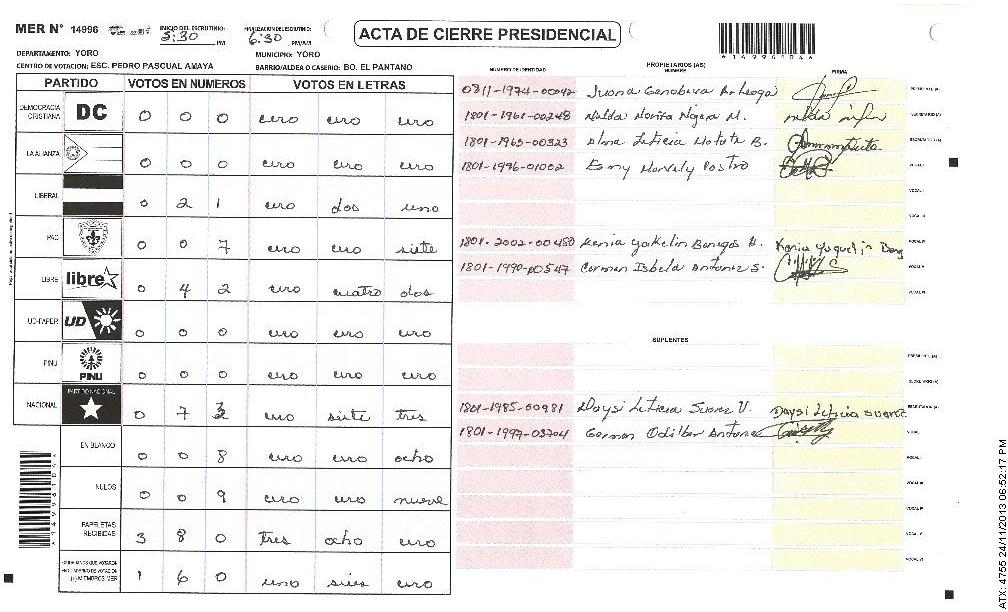 MER N° 14996
INICIO DEL ESCRUTINIO: 5:30 PM
FINALIZACION DEL ESCRUTINIO: 6:30 PM/AM
ACTA DE CIERRE PRESIDENCIAL
A149961044
DEPARTAMENTO: YORO
MUNICIPIO: YORO
CENTRO DE VOTACION: ESC. PEDRO PASCUAL AMAYA
BARRIO/ALDEA O CASERIO: BO. EL PANTANO
PARTIDO VOTOS EN NUMEROS VOTOS EN LETRAS
DEMOCRACIA CRISTIANA DC 0 0 0 cero cero cero
LA ALIANZA 0 0 0 cero cero cero
LIBERAL 0 2 1 cero dos uno
PAC 0 0 7 cero cero siete
LIBRE libre 0 4 2 cero cuatro dos
UD-FAPER UD 0 0 0 cero cero cero
PINU PINU 0 0 0 cero cero cero
NACIONAL PARTIDO NACIONAL 0 7 3 cero siete tres
EN BLANCO 0 0 8 cero cero ocho
NULOS 0 0 9 cero cero nueve
PAPELETAS RECIBIDAS 3 8 0 tres ocho cero
CIUDADANOS QUE VOTARON (+) MIEMBROS MER 1 6 0 uno seis cero
PROPIETARIOS (AS)
NUMERO DE IDENTIDAD NOMBRE FIRMA
0311-1974-00042 Juana
1801-1961-00248 Nelda M.
1801-1965-00323 Alma Leticia Matute B.
1801-1996-01002
1801-2002-00450 Kenia Yakelin
1801-1990-00547 Carmen Isbela Antonez S.
SUPLENTES
1801-1985-00981 Daysi Leticia Suarez V. Daysi Leticia Suarez
1801-1997-03704 German Odilber
ATX: 4755 24/11/2013 06:52:17 PM